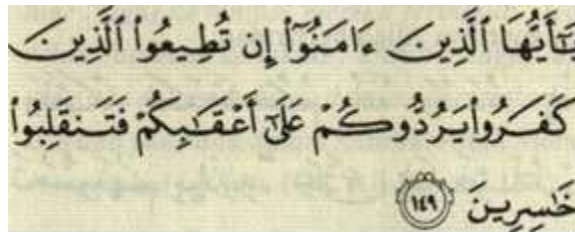 يَـٰٓأَيُّهَا ٱلَّذِينَ ءَامَنُوٓا۟ إِن تُطِيعُوا۟ ٱلَّذِينَ
كَفَرُوا۟ يَرُدُّوكُمْ عَلَىٰٓ أَعْقَـٰبِكُمْ فَتَنقَلِبُوا۟
خَـٰسِرِينَ ١٤٩